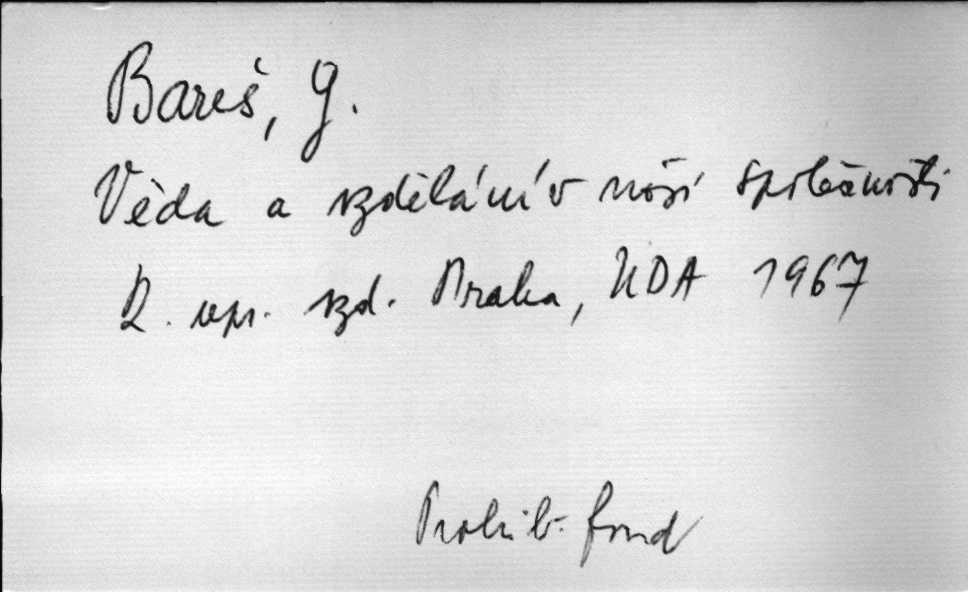 Bareš, G.
Věda a vzdělání v naší společnosti
2. upr. vyd. Praha, UDA 1967
Prohib. fond